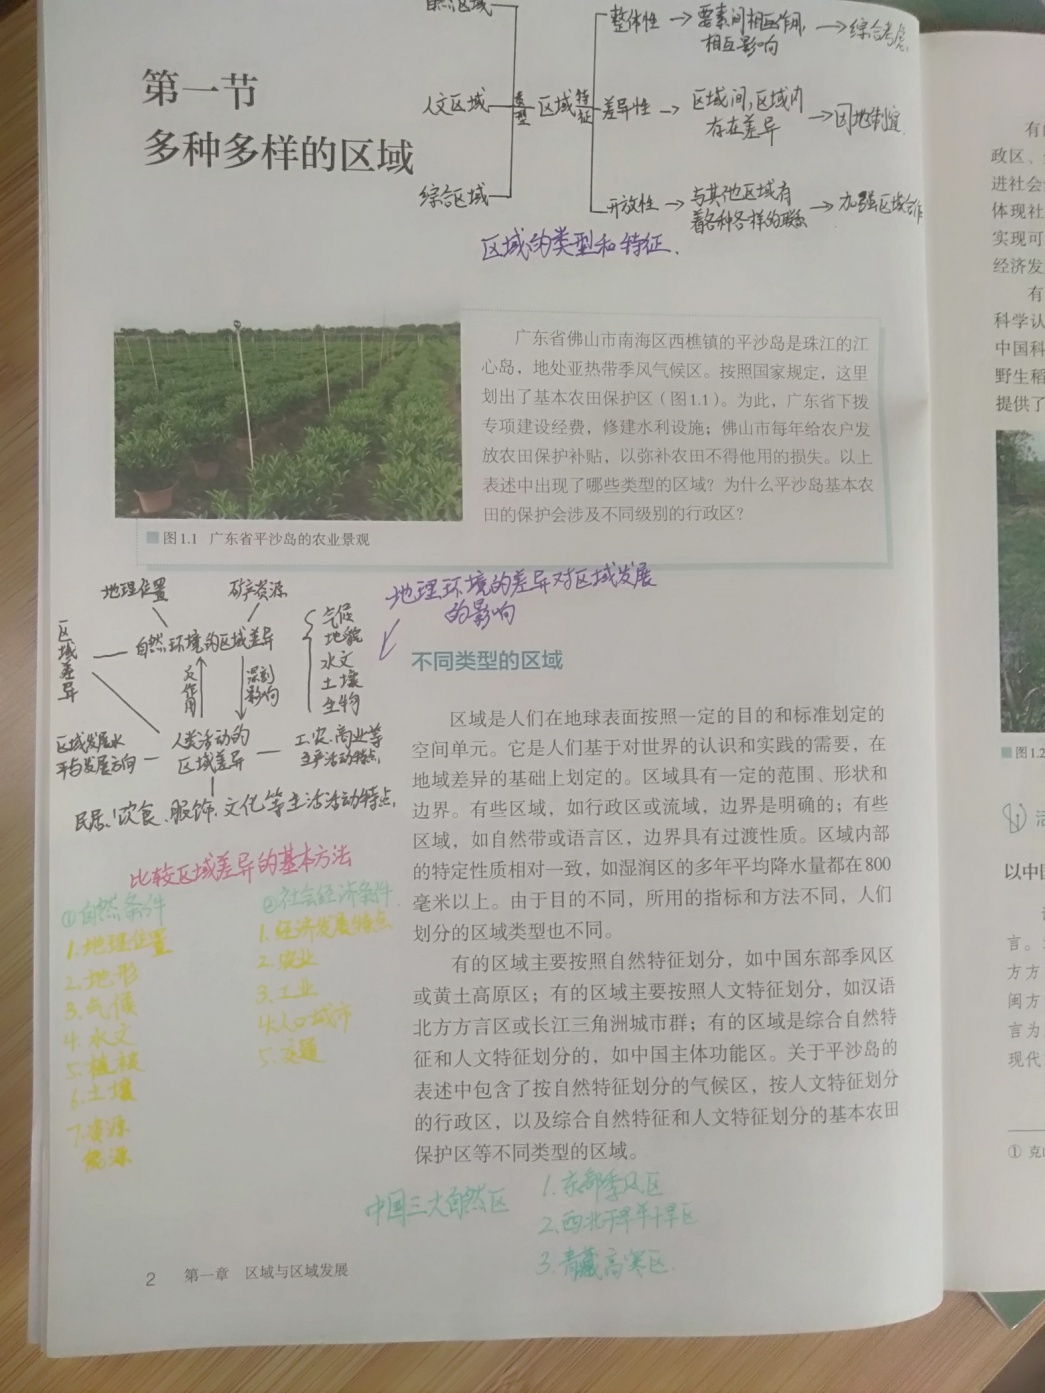 自然区域
整体性 → 要素间相互作用, → 综合考虑
相互影响
第一节
多种多样的区域
人文区域
类型
区域
特征
差异性 → 区域间,区域内 → 因地制宜
存在差异
综合区域
开放性 → 与其他区域有 → 加强区域合作
着各种各样的联系
区域的类型和特征.
广东省佛山市南海区西樵镇的平沙岛是珠江的江
心岛，地处亚热带季风气候区。按照国家规定，这里
划出了基本农田保护区（图1.1）。为此，广东省下拨
专项建设经费，修建水利设施；佛山市每年给农户发
放农田保护补贴，以弥补农田不得他用的损失。以上
表述中出现了哪些类型的区域？为什么平沙岛基本农
田的保护会涉及不同级别的行政区？
图1.1 广东省平沙岛的农业景观
地理环境的差异对区域发展
的影响
地理位置
矿产资源
区域差异
自然环境的区域差异
气候
地貌
水文
土壤
生物
反作用
深刻影响
区域发展水
平与发展方向
人类活动的
区域差异
工、农、商业等
生产活动特点,
民居、饮食、服饰、文化等生活活动特点,
比较区域差异的基本方法
①自然条件
1.地理位置
2.地形
3.气候
4.水文
5.植被
6.土壤
7.资源
能源
②社会经济条件
1.经济发展特点
2.农业
3.工业
4.人口城市
5.交通
不同类型的区域
区域是人们在地球表面按照一定的目的和标准划定的
空间单元。它是人们基于对世界的认识和实践的需要，在
地域差异的基础上划定的。区域具有一定的范围、形状和
边界。有些区域，如行政区或流域，边界是明确的；有些
区域，如自然带或语言区，边界具有过渡性质。区域内部
的特定性质相对一致，如湿润区的多年平均降水量都在800
毫米以上。由于目的不同，所用的指标和方法不同，人们
划分的区域类型也不同。
有的区域主要按照自然特征划分，如中国东部季风区
或黄土高原区；有的区域主要按照人文特征划分，如汉语
北方方言区或长江三角洲城市群；有的区域是综合自然特
征和人文特征划分的，如中国主体功能区。关于平沙岛的
表述中包含了按自然特征划分的气候区，按人文特征划分
的行政区，以及综合自然特征和人文特征划分的基本农田
保护区等不同类型的区域。
中国三大自然区
1.东部季风区
2.西北干旱半干旱区
3.青藏高寒区.
2 第一章 区域与区域发展
政区、
进社会
体现社
实现可
经济发
有
科学认
中国科
野生稻
提供了
图1.2
以中国
言。
方方
闽方
言为
现代